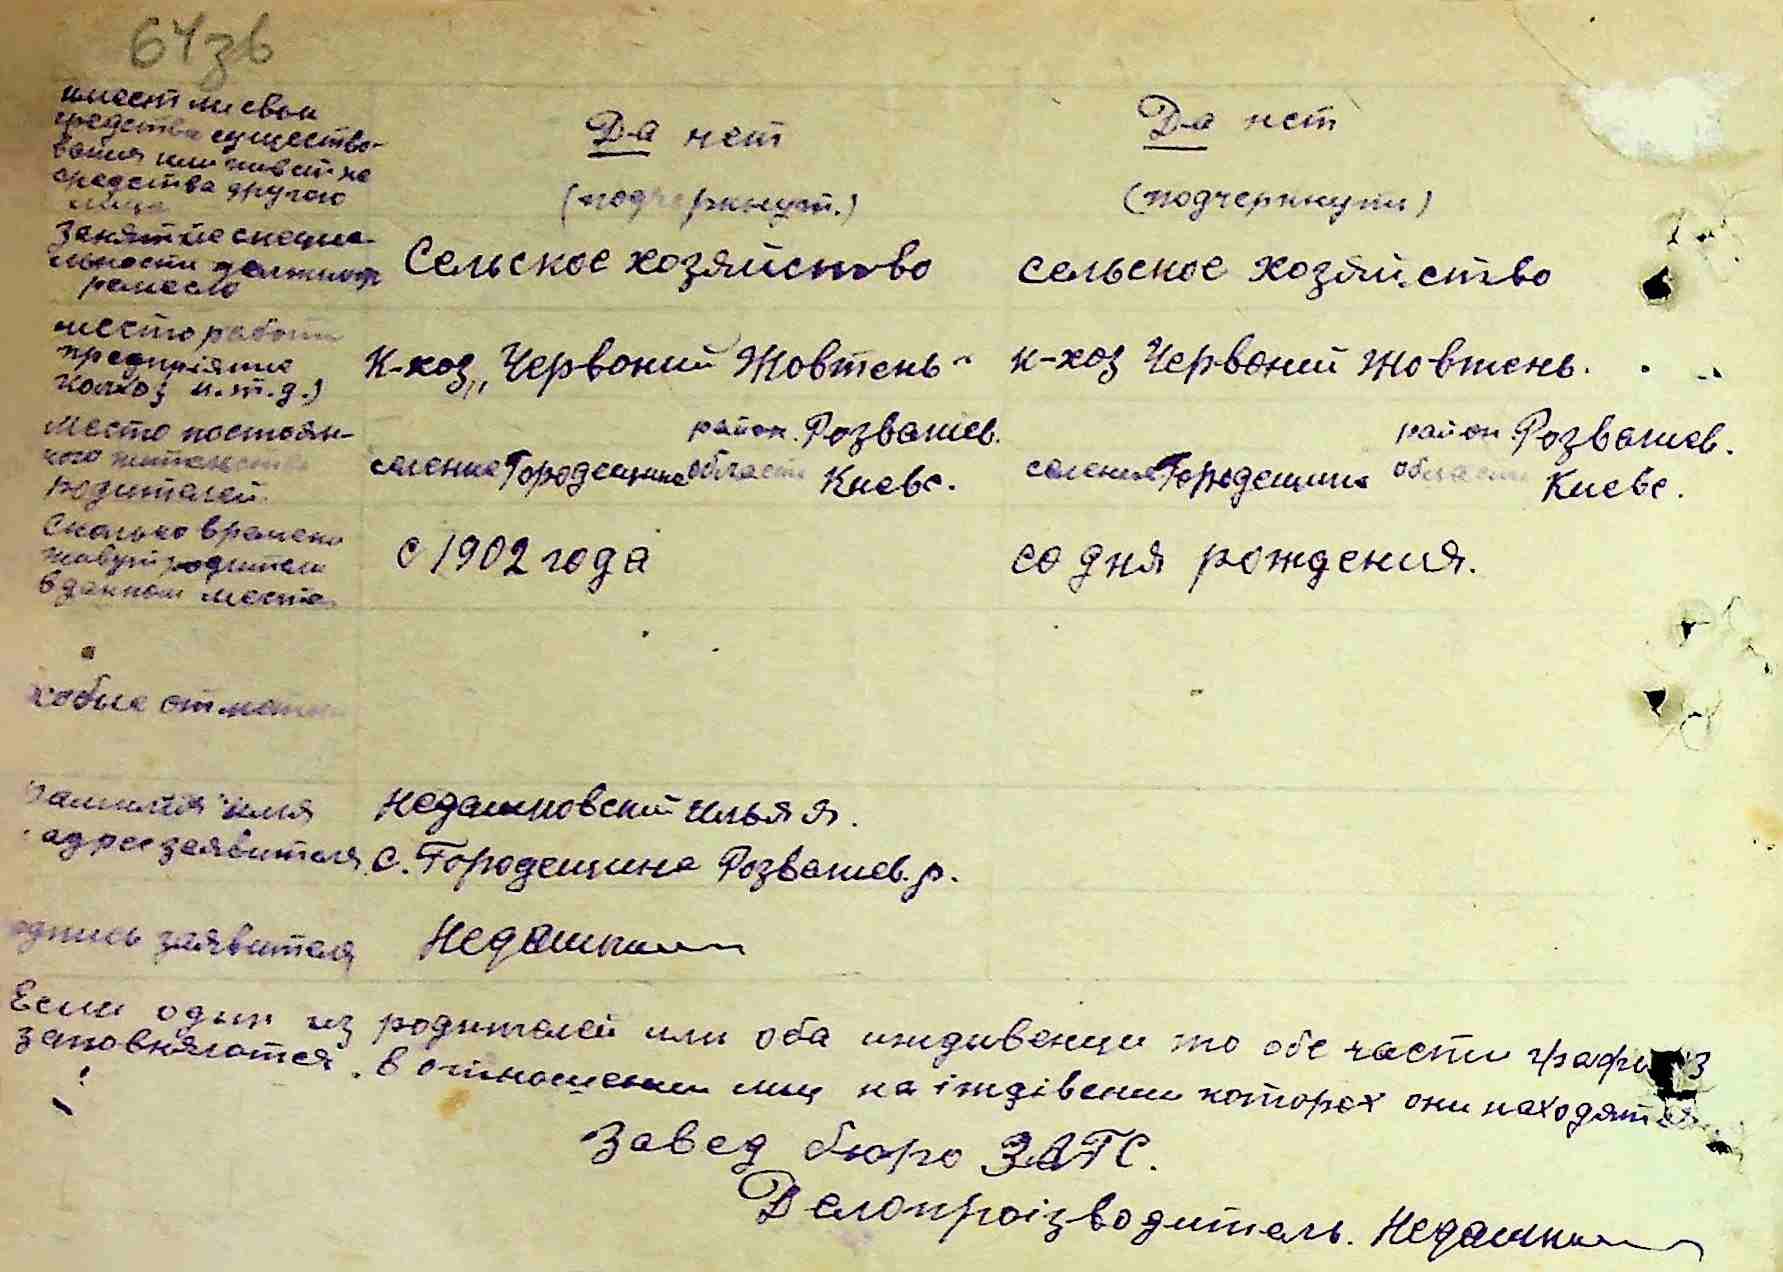 64зв
имеет ли свои
средства существо-
вания или живет на
средства другого
лица
Да нет
Да нет
(подчеркнут.)
(подчеркнути)
Занятие специа-
льности должность
ремесло
Сельское хозяйство
сельское хозяйство
место работи
предприятие
колхоз и.т.д.)
К-хоз „Червоний Жовтень"
к-хоз Червоний Жовтень.
Место постоян-
ного жительства
родителей
селение Городещина
район. Розважев.
области Киевс.
селение Городещина
район Розважев.
области Киевс.
Сколько времени
живут родители
в данном месте
с 1902 года
со дня рождения.
собые отметки
фамилия имя
адрес заявителя
Недашковский Илья Я.
с. Городещина Розважев. р.
одпись заявителя
Недашк
Если один из родителей или оба иждивенци то обе части графи 3
заповняются. в отношении лиц на іждівении которох они находятся
Завед бюро ЗАГС.
Делопроізводитель. Недашк